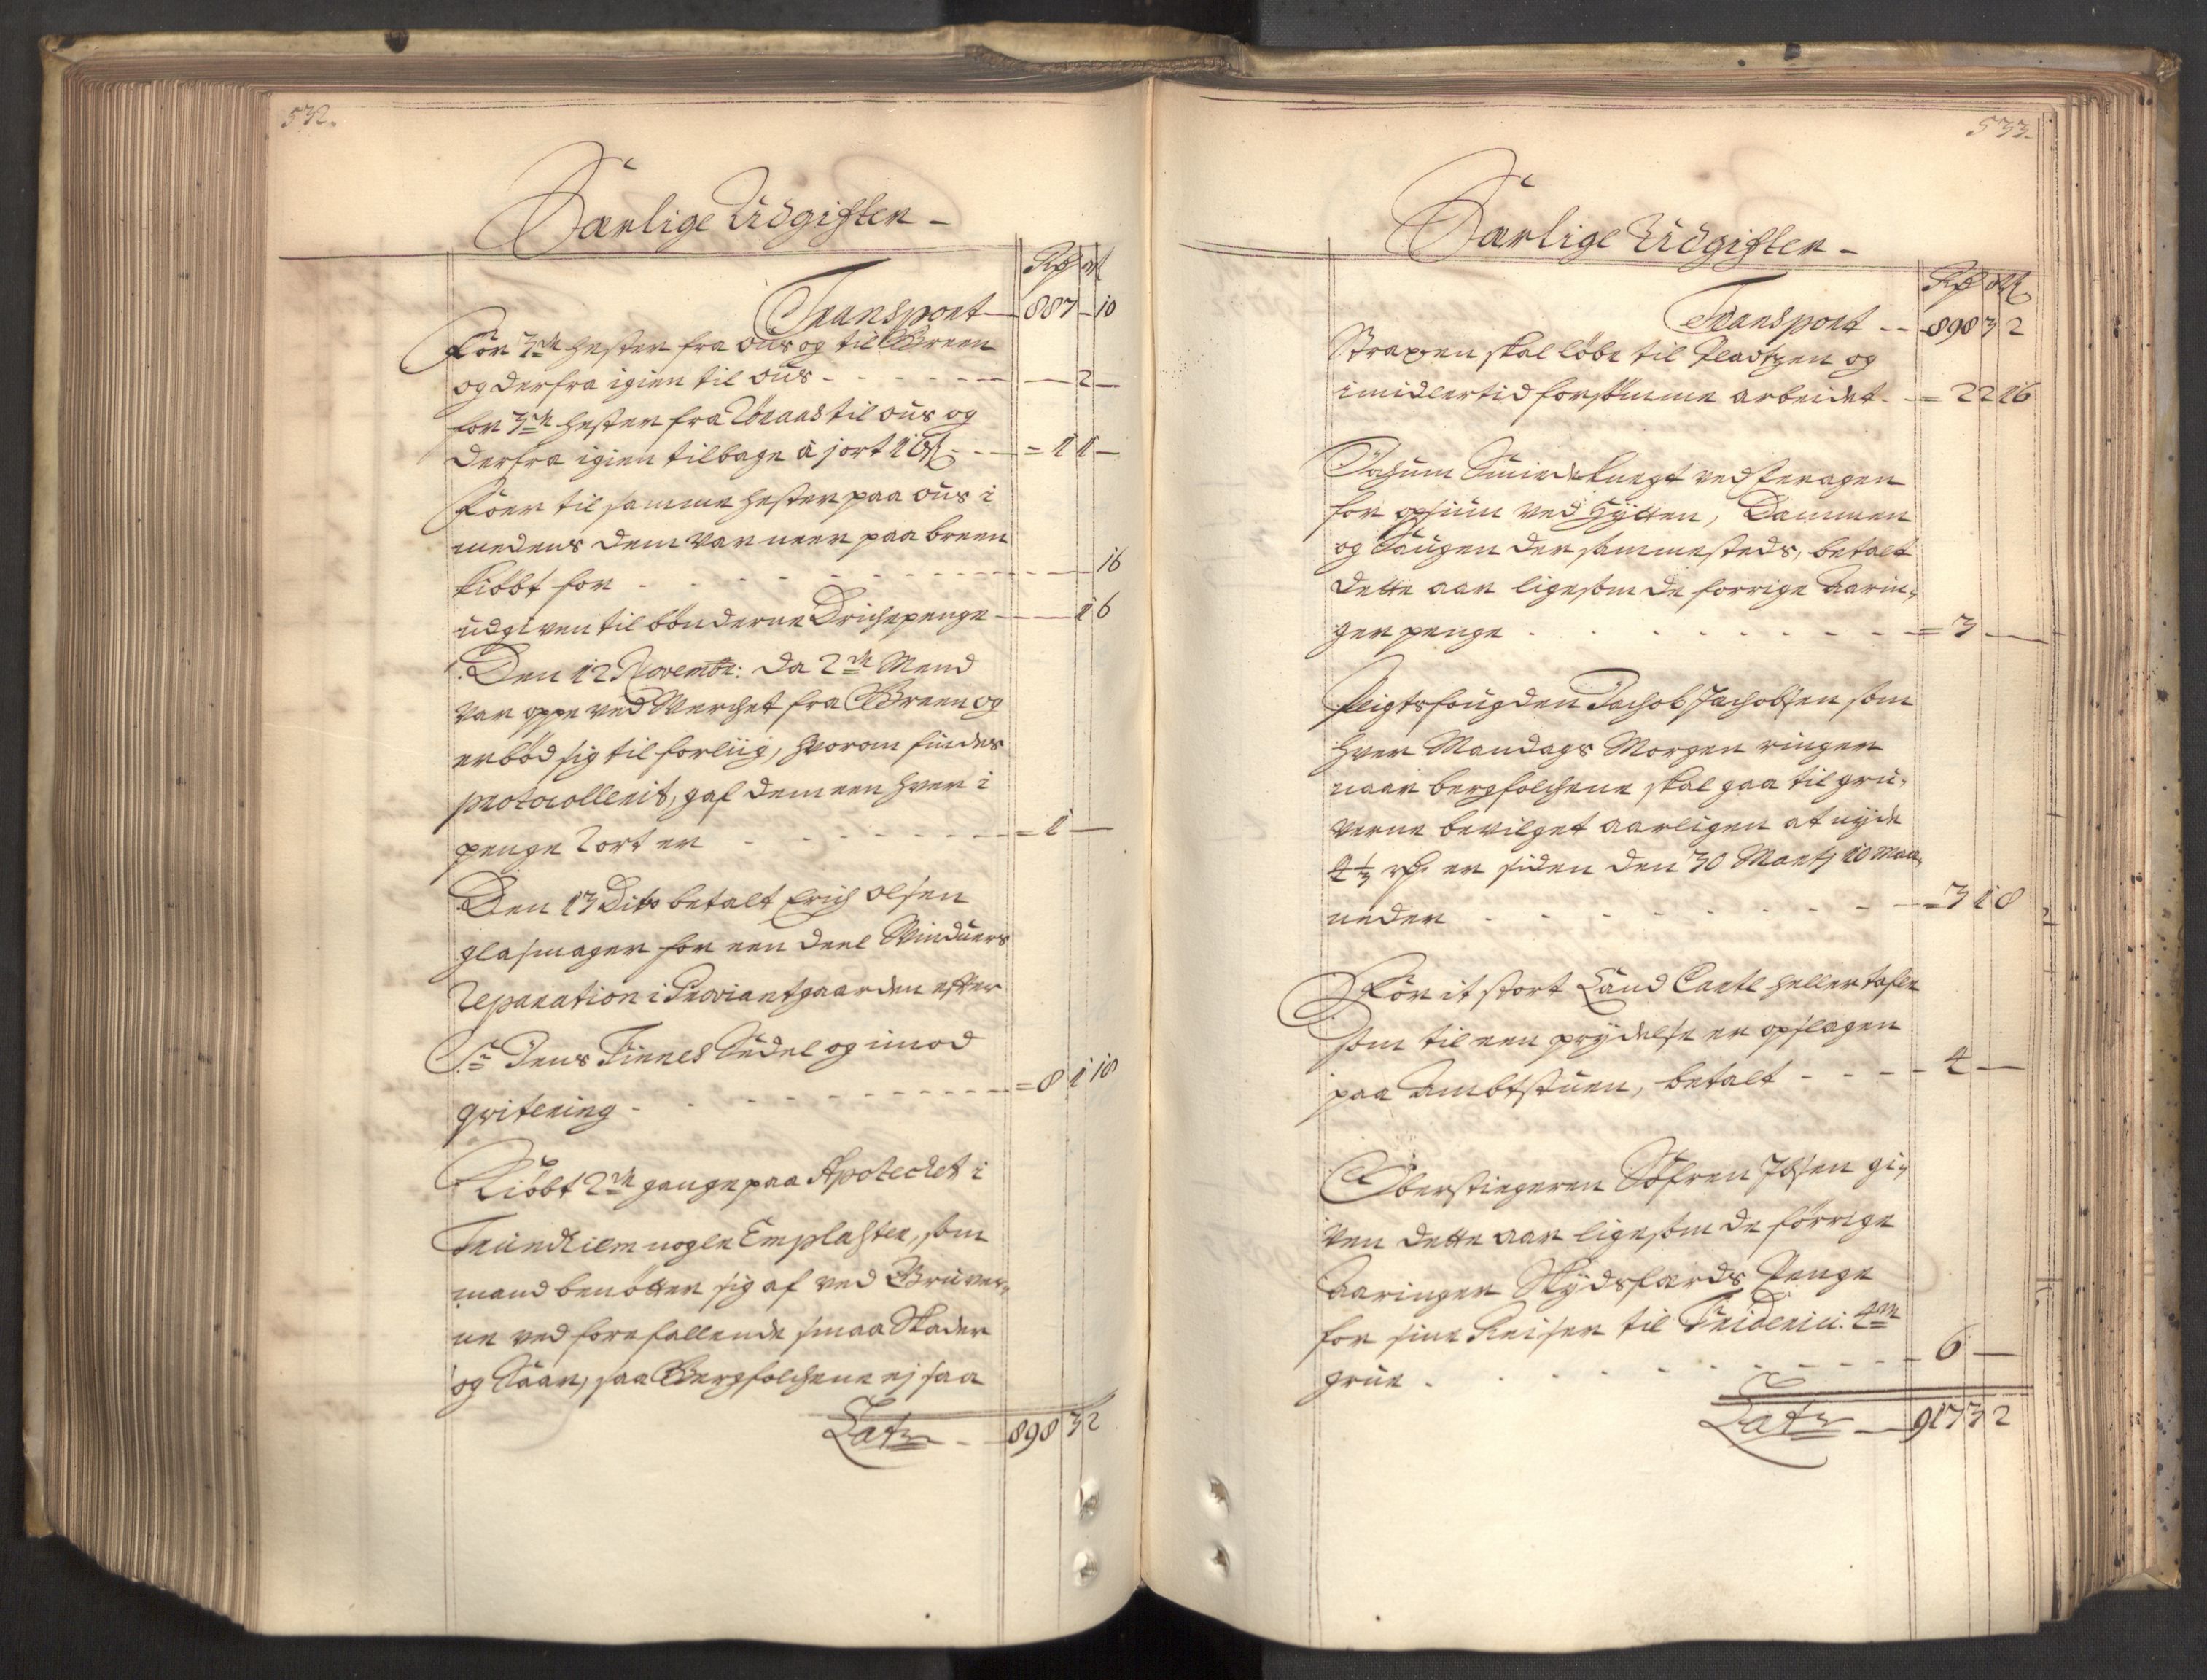 532.
Særlige Udgifter
Rdr ort ß
Transport 887 - 10
For 3de hester fra ous og til Breen
og derfra igien til ous - 2 -
for 3de hester fra Tønaas til ous og
derfra igien tilbage à jort 16ß = 1 1 -
Foer til samme hester paa ous i
medens dem var neer paa breen
kiøbt for 16
udgiven til bønderne Drichepenge 1 6
Den 12 Novembr: da 2de Mend
var oppe ved Werchet fra Breen og
erbød sig til forliig, hvorom findes
protocollerit, gaf dem een hver i
penge 2 ort er = 1 -
Den 13 Dito betalt Erich olsen
glasmager for een deel Vinduers
Reparation i Proviantgaarden efter
Sr Jens Finnes Sedel og imod
qvitering = 8 1 18
Kiøbt 2de gange paa Apotechet i
Trundhiem nogle Emplaster, som
mand benøtter sig af ved Gruver,,
ne ved forefallende smaa Skader
og Saar, saa Bergfolchene ej saa
Latr 898 3 2
533.
Særlige Udgifter
Rdr ort ß
Transport 898 3 2
Straxen skal løbe til Pladtzen og
imidlertid forsømme arbeidet = 2 2 16
Jochum Smideknegt ved
for opsiun ved Hytten, Dammen
og Saugen der sammesteds, betalt
dette aar ligesom de forrige Aarin,,
ger penge = 3 -
Pligtsfougden Jachob Jachobsen som
hver Mandags Morgen ringer
naar bergfolchene skal gaa til gru,,
verne bevilget aarligen at nyde
4 1/3 rdr. er siden den 30 Martj 10 maa,,
neder = 3 1 8
For it stort Land Carte heller tafle
som til een prydelse er opslagen
paa Ambtstuen, betalt 4 -
Oberstiegeren Søfren Ibsen gi,,
ven dette aar ligesom de forrige
Aaringer Skydsfærds Penge
for sine Reiser til Friderici 4de
grue 6 -
Latr 917 3 2